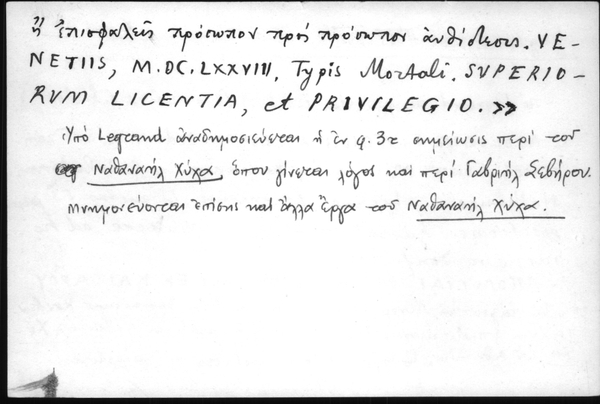 ἢ ἐπισφαλεῖς πρόσωπον πρὸς πρόσωπον ἀνθίστεσις. VE-
NETIIS, M.DC.LXXVIII, Typis Mortali. SVPERIO-
RVM LICENTIA, et PRIVILEGIO. »
Ὑπὸ Legrand ἀναδημοσιεύεται ἡ ἐν φ. 3τ σημείωσις περὶ τοῦ
Ναθαναὴλ Χύχα, ὅπου γίνεται λόγος καὶ περὶ Γαβριὴλ Σεβήρου.
Μνημονεύονται ἐπίσης καὶ ἄλλα ἔργα τοῦ Ναθαναὴλ Χύχα.